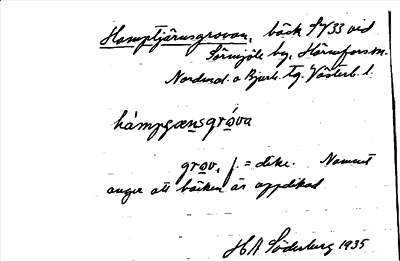 Hamptjärnsgrovan, bäck SV33 vid
Sörmjöle by, Hörnefors sn.
Nordmal. o Bjurh. tg. Västerb. l.
hámpgænsgróva
grov, f. = dike. Namnet
anger att bäcken är uppdikad
H A Söderberg 1935